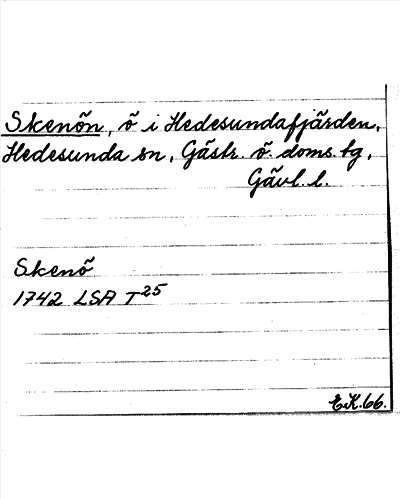 Skenön, ö i Hedesundafjärden,
Hedesunda sn, Gästr. ö. doms. tg,
Gävl. l.
Skenö
1742 LSA T25
E.K. 66.